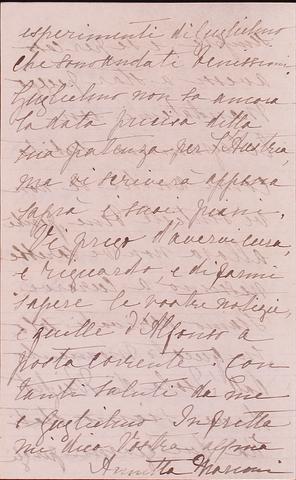 esperimenti di Guglielmo
che sono andati benissimo.
Guglielmo non sa ancora
la data precisa della
sua partenza per l'Austria,
ma vi scriverà appena
saprà i suoi piani.
Vi prego d'avervi cura,
e riguardo, e di farmi
sapere le vostre notizie,
e quelle d'Alfonso a
posta corrente. Con
tanti saluti da me
e Guglielmo In fretta
mi dico Vostra affma
Annetta Marconi